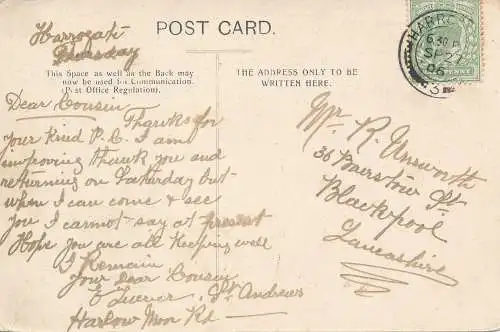 POST CARD.
Harrogate
Thursday
This Space as well as the Back may
now be used for Communication.
(Post Office Regulation).
THE ADDRESS ONLY TO BE
WRITTEN HERE.
HARROGATE
6.30 P
SP 27
06
Dear Cousin
Thanks for
your kind P.C. I am
improving thank you and
returning on Saturday but
when I can come & see
you I cannot say at present
Hope you are all keeping well
I Remain
Your Dear Cousin
E St Andrews
Harlow Moor Rd
Mr R. Unsworth
36 St
Blackpool
Lancashire